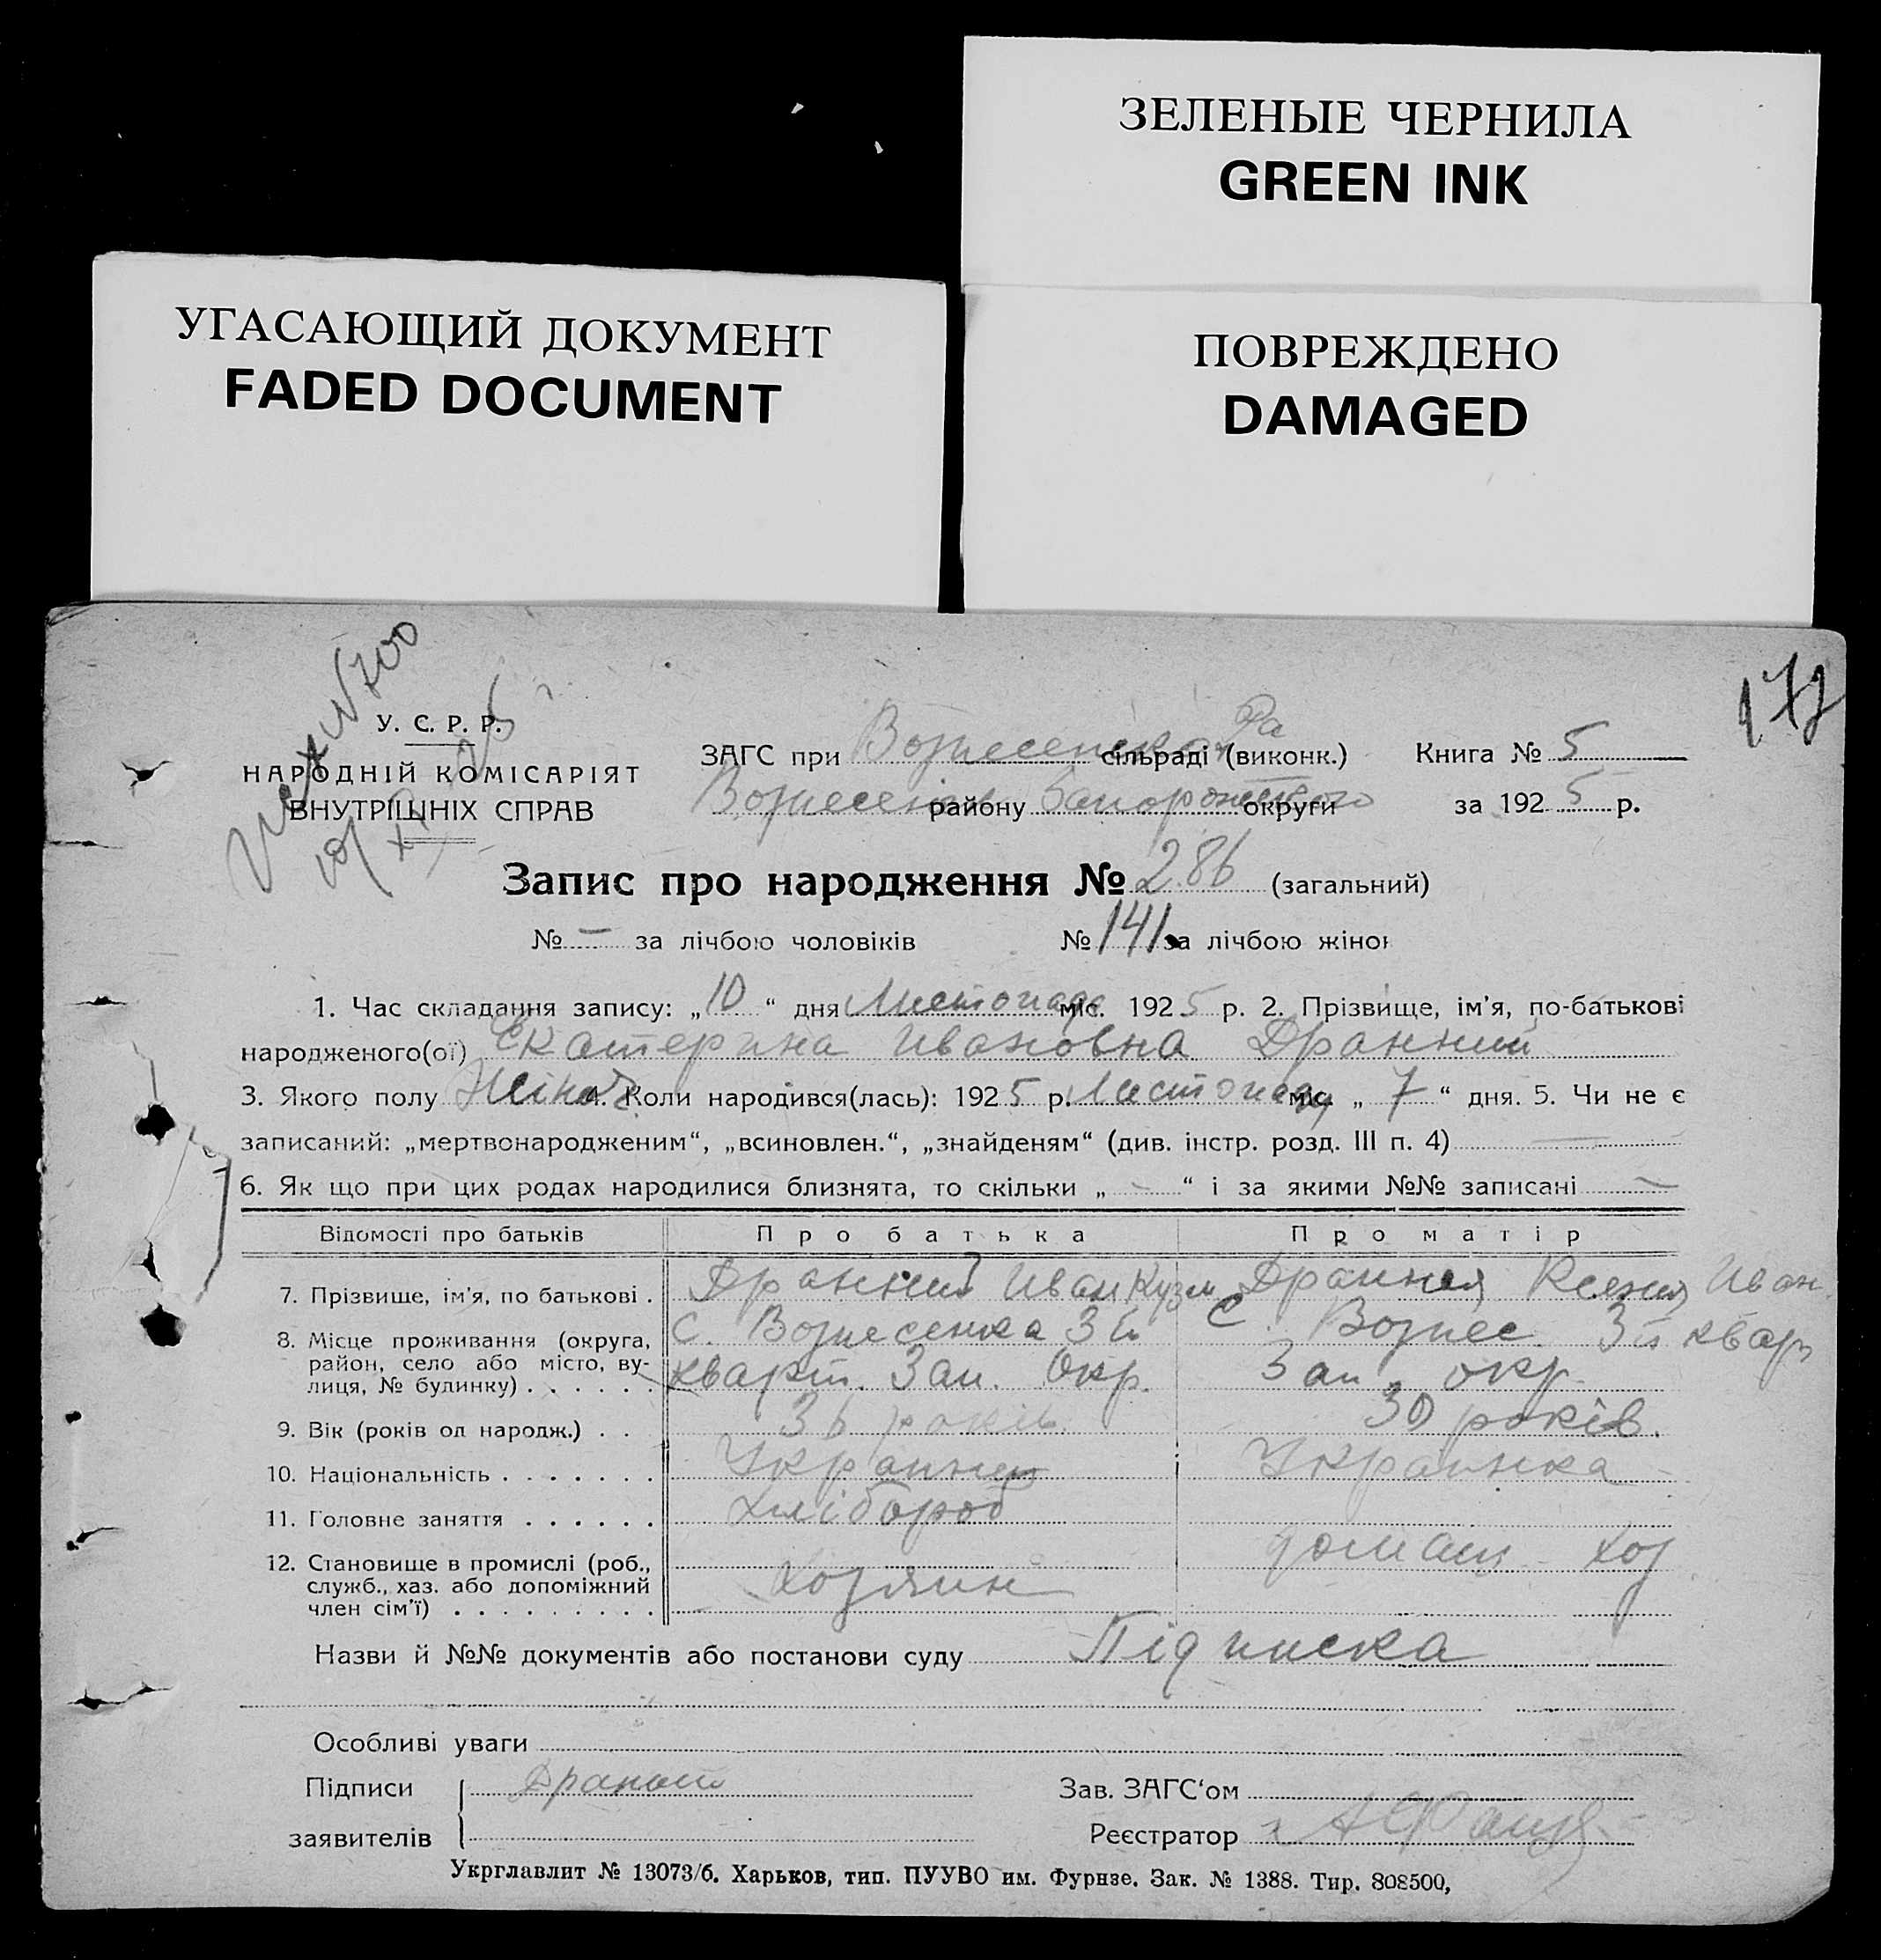 ЗЕЛЕНЫЕ ЧЕРНИЛА
GREEN INK
УГАСАЮЩИЙ ДОКУМЕНТ
FADED DOCUMENT
ПОВРЕЖДЕНО
DAMAGED
У. С. Р. Р.
НАРОДНІЙ КОМІСАРІЯТ
ВНУТРІШНІХ СПРАВ
ЗАГС при сільраді (виконк.) Книга № 5
району Запорожского округи за 1925 р.
Запис про народження № 286 (загальний)
№ — за лічбою чоловіків № 141 за лічбою жінок
1. Час складання запису: „10“ дня Листопада міс. 1925 р. 2. Прізвище, ім'я, по-батькові
народженого(ої) Екатерина Ивановна Дранний
3. Якого полу Жіноч. 4. Коли народився(лась): 1925 р. Листопада міс. „7“ дня. 5. Чи не є
записаний: „мертвонародженим“, „всиновлен.“, „знайденям“ (див. інстр. розд. III п. 4) —
6. Як що при цих родах народилися близнята, то скільки „—“ і за якими №№ записані —
Відомості про батьків Про батька Про матір
7. Прізвище, ім'я, по батькові . Дранний Иван Кузм. Дранная Ксения Иван.
8. Місце проживання (округа, район, село або місто, вулиця, № будинку) . . . . . . с. Вознесенка 3й кварт. Зап. Окр. с. Вознес. 3й квар Зап. окр.
9. Вік (років од народж.) . . 36 років. 30 років.
10. Національність . . . . . . . Украинец Украинка
11. Головне заняття . . . . . . Хлібороб
12. Становище в промислі (роб., служб., хаз. або допоміжний член сім'ї) . . . . . . . . . Хозяин домаш. хоз
Назви й №№ документів або постанови суду Підписка
Особливі уваги
Підписи
заявителів
Зав. ЗАГС‘ом
Реєстратор
Укрглавлит № 13073/б. Харьков, тип. ПУУВО им. Фурнзе. Зак. № 1388. Тир. 808500,